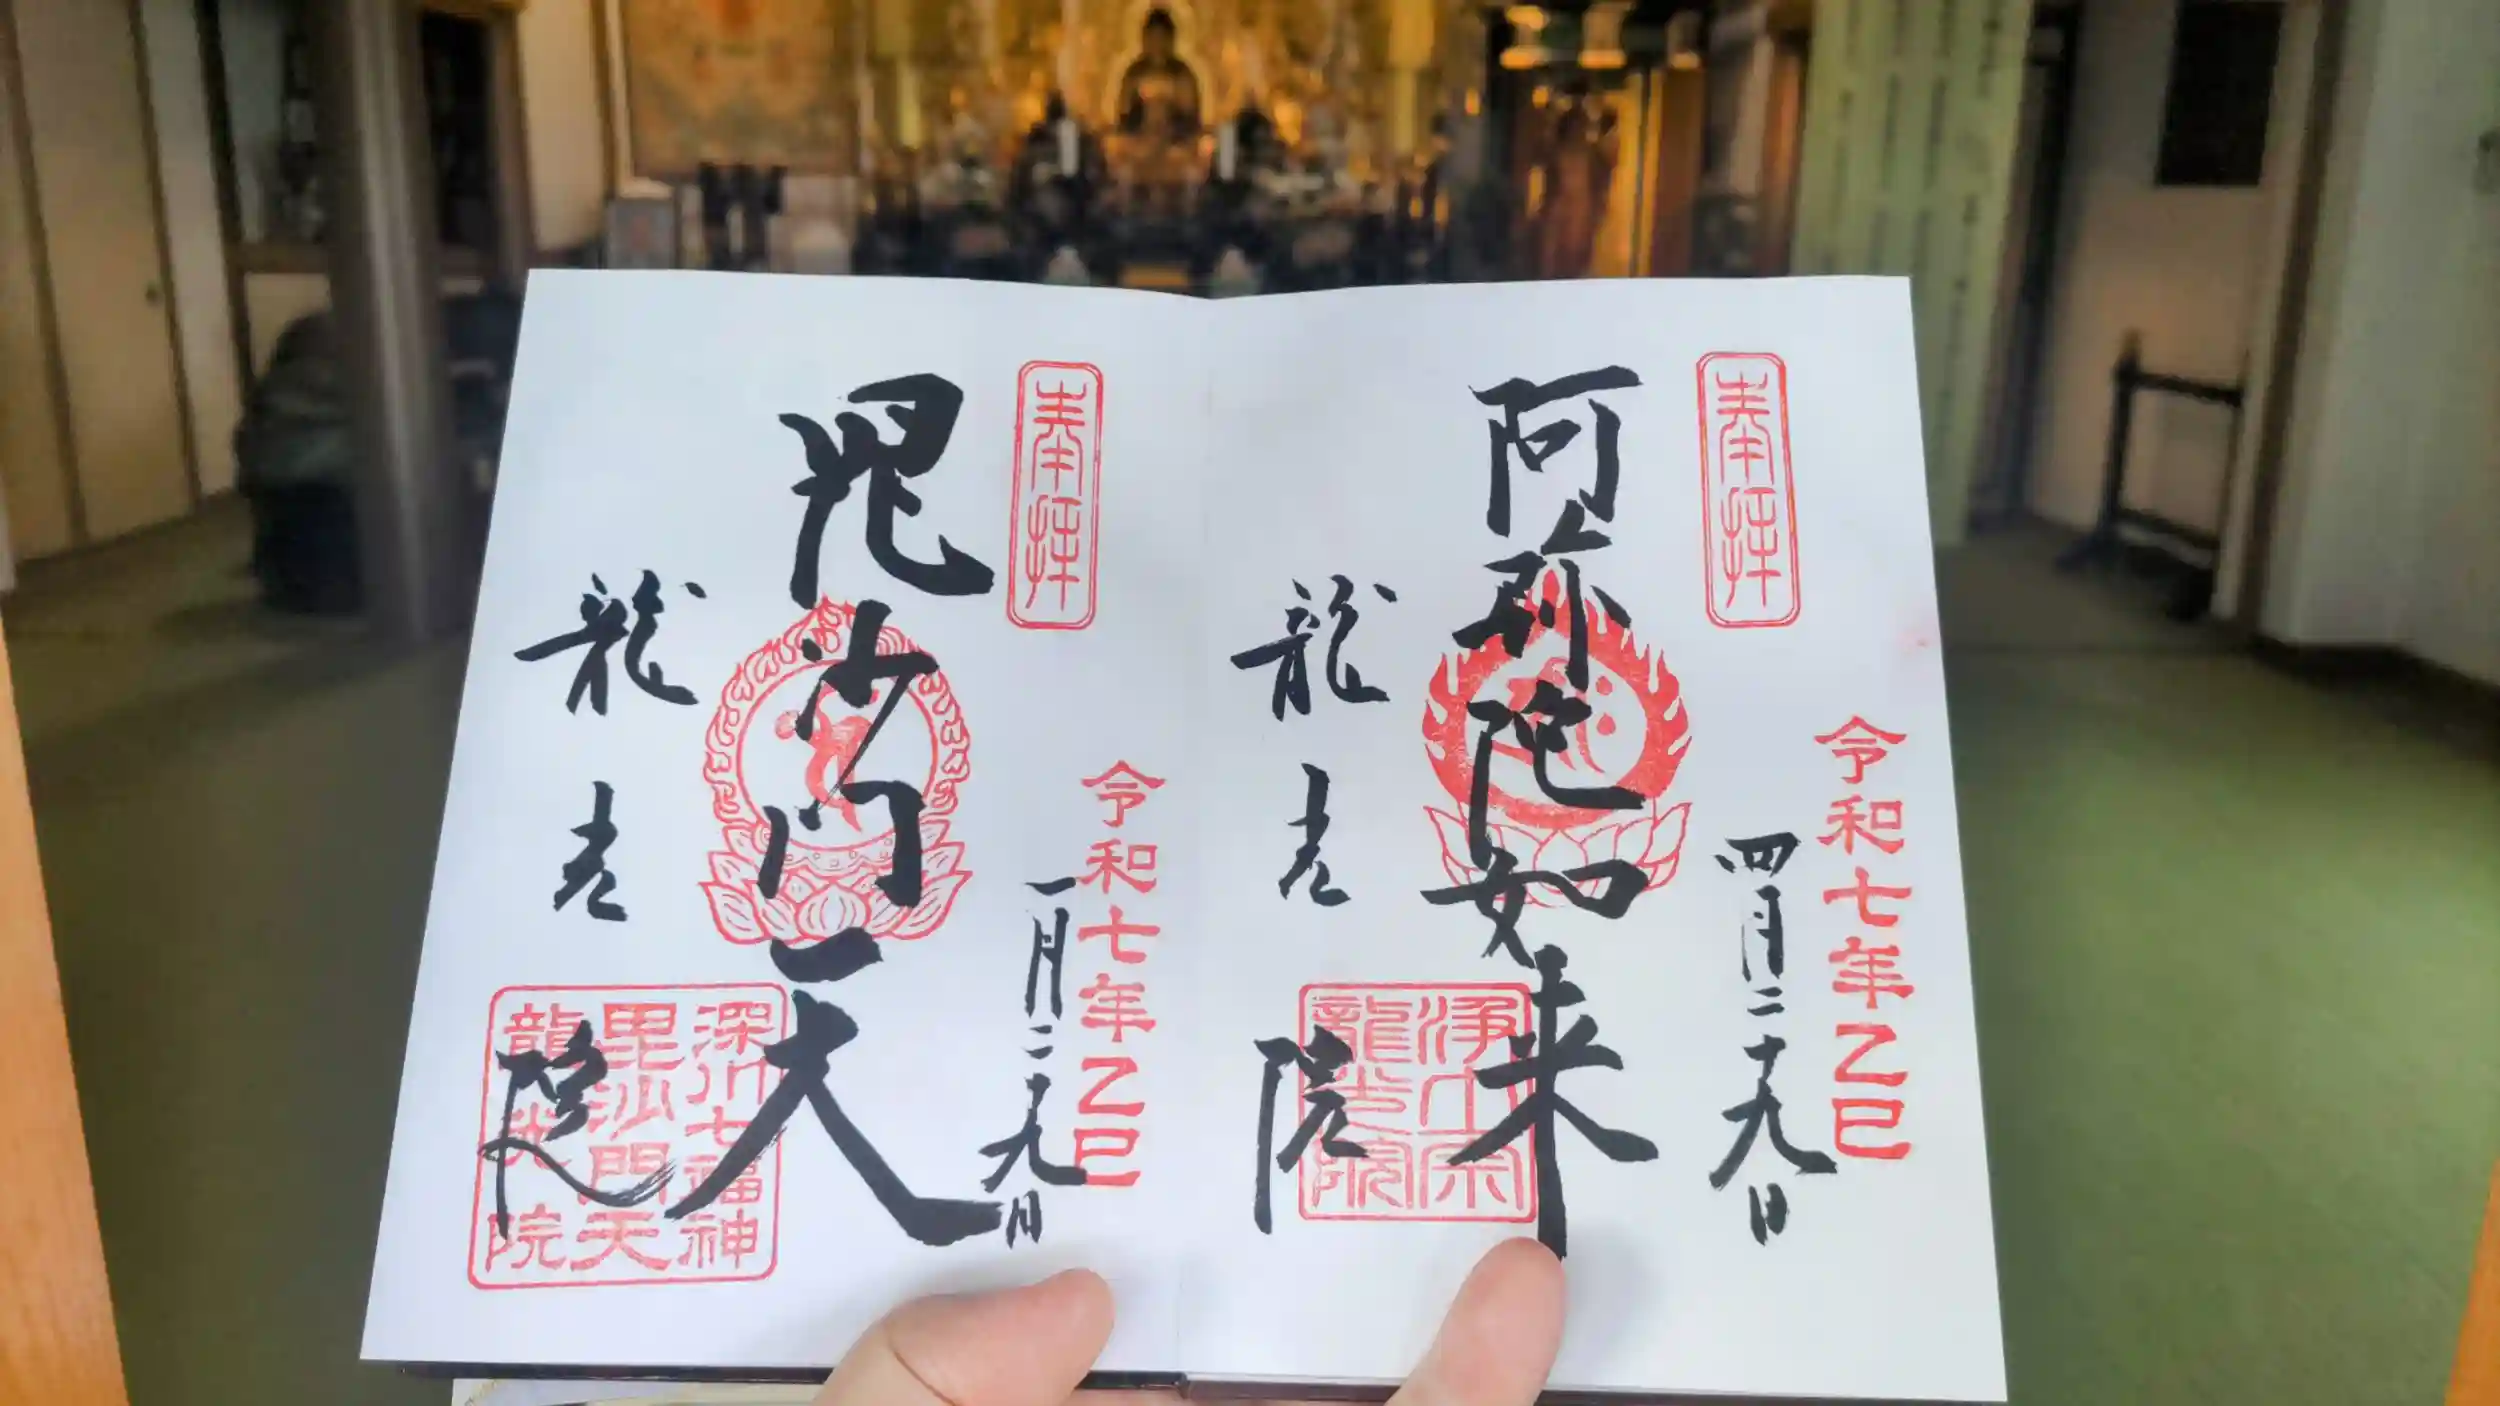 奉拝
令和七年乙巳
四月二十九日
阿弥陀如来
浄土宗
龍光院
龍光院
奉拝
令和七年乙巳
一月二十九日
毘沙門天
深川七福神
毘沙門天
龍光院
龍光院